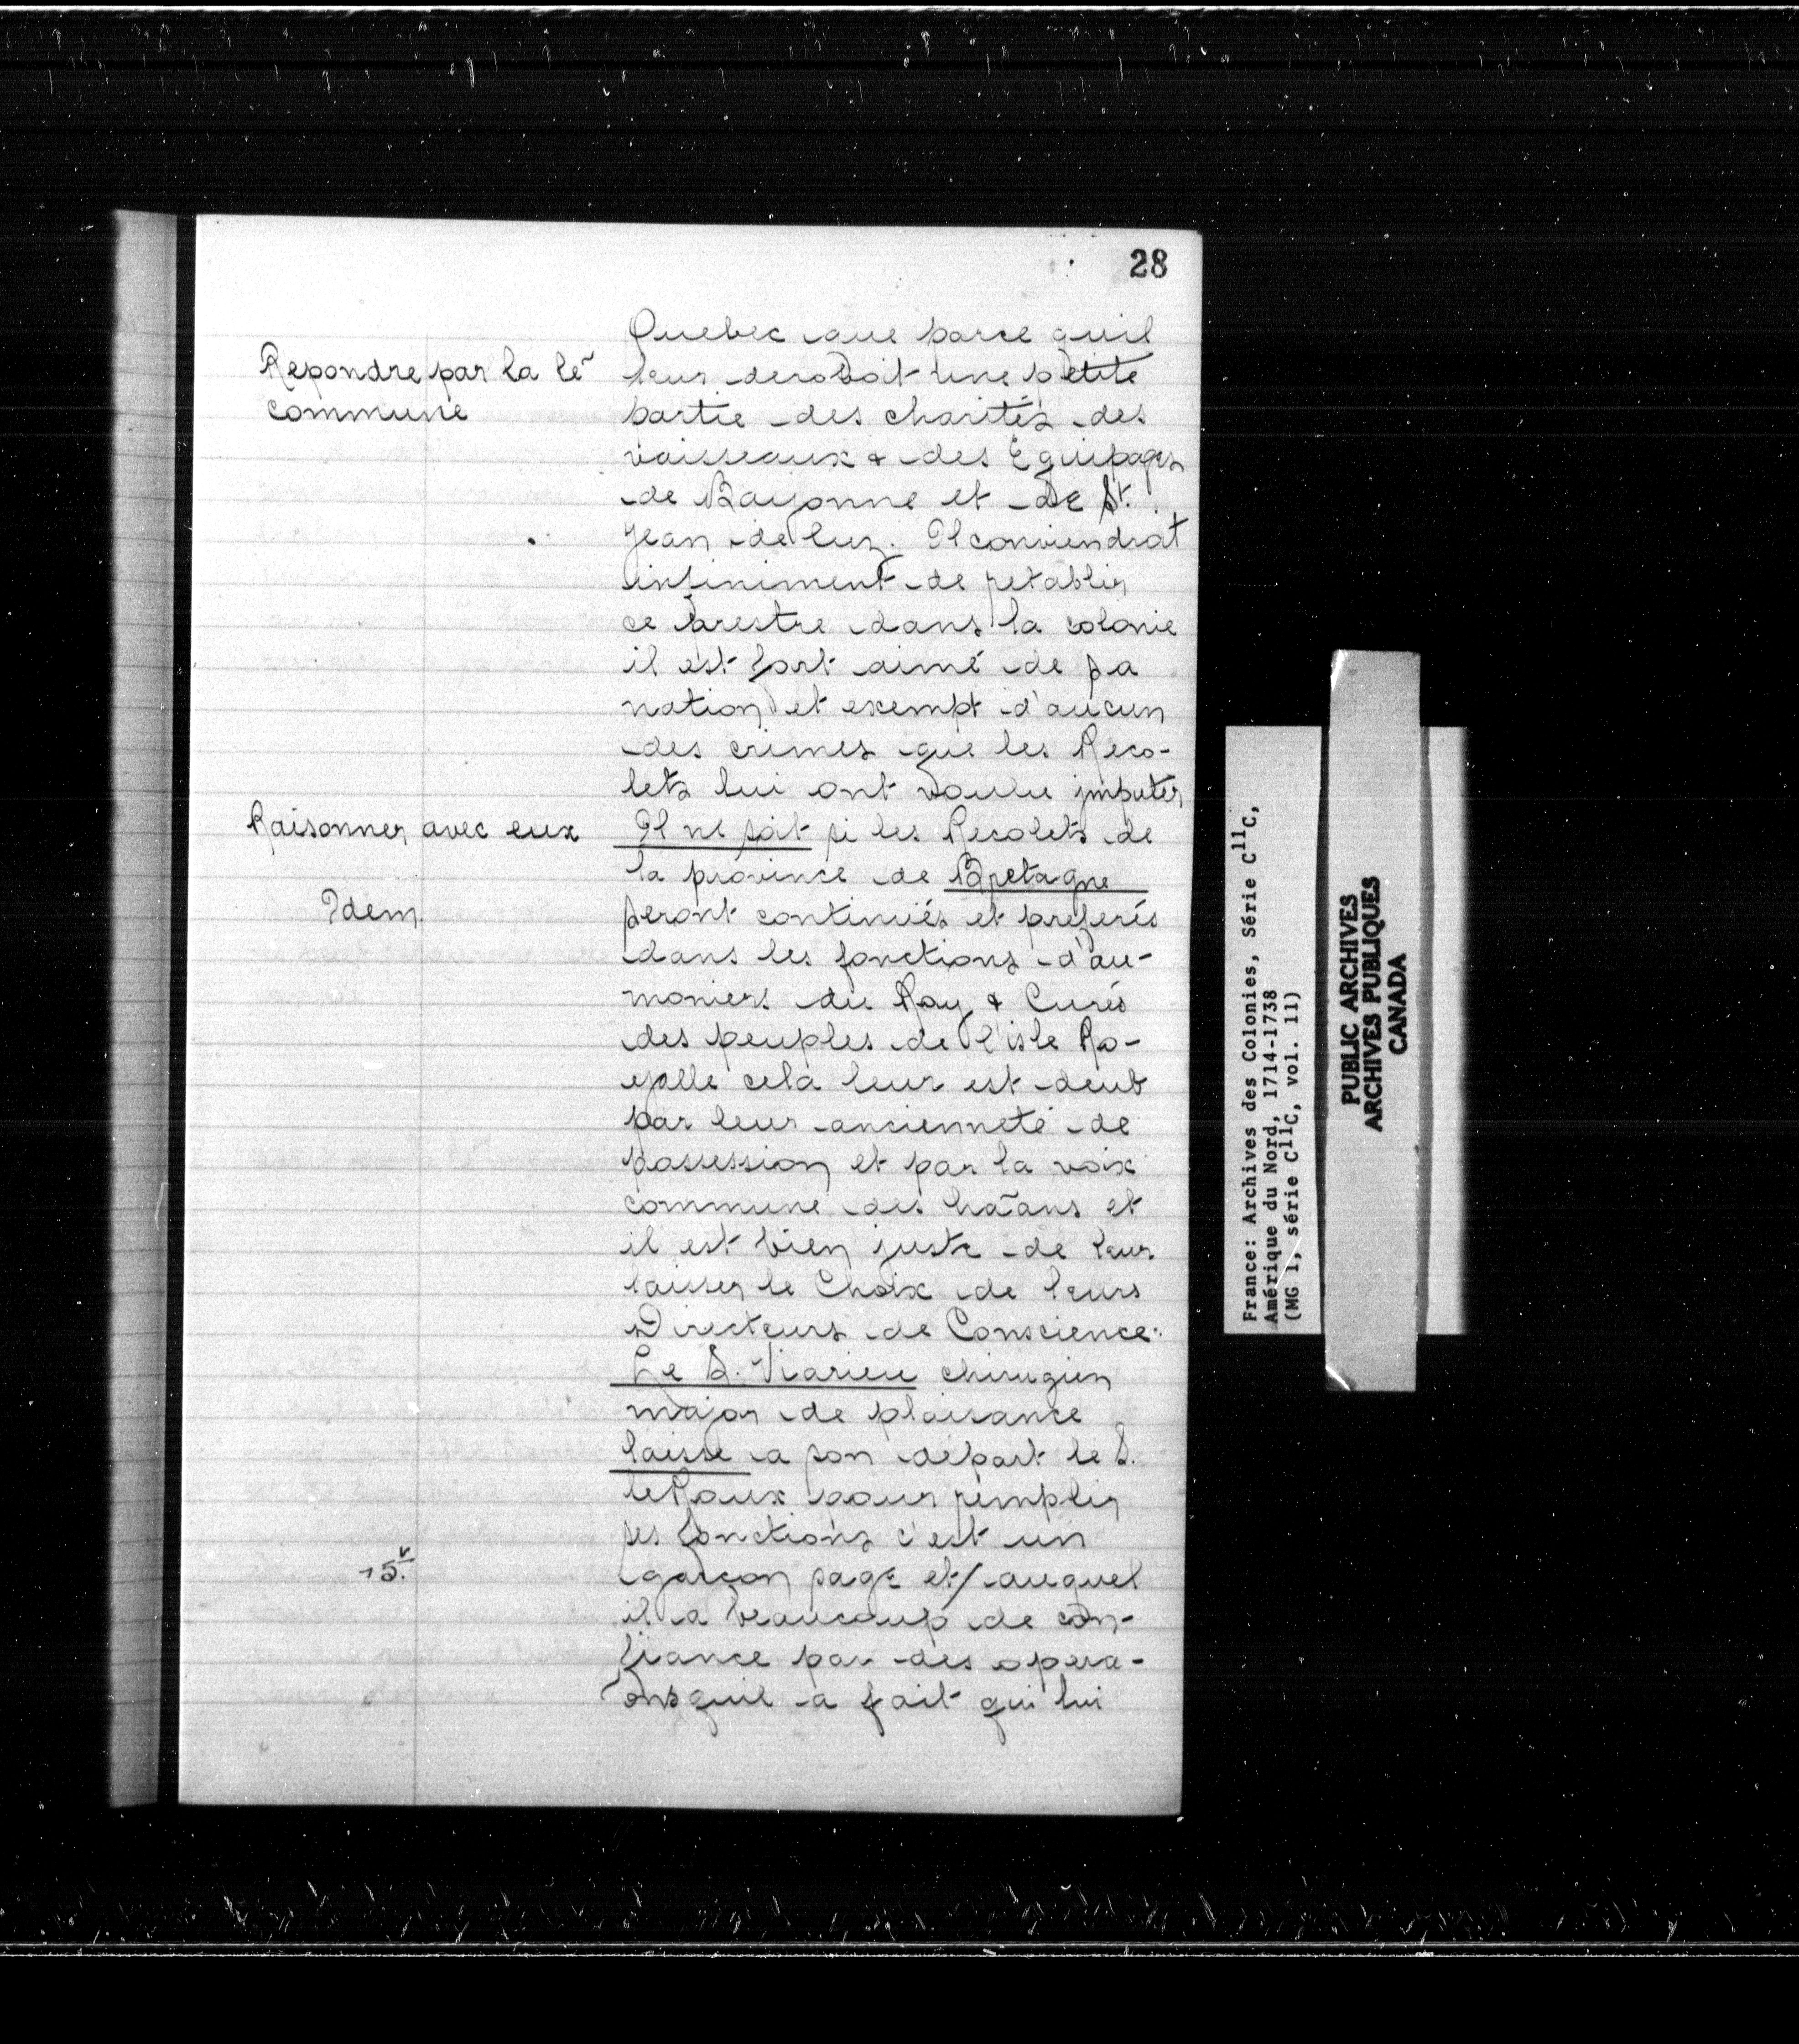 28
Repondre par la le~
commune
Quebec que parce quil
leur deroboit une petite
partie des charités des
vaisseaux & des Equipages
de Bayonne et de St.
Jean de luz. Il conviendrat
infiniment de retablir
ce Prestre dans la colonie
il est fort aimé de sa
nation et exempt d'aucun
des crimes que les Reco-
lets lui ont voulu imputer
Raisonner avec eux
Il ne sait si les Recolets de
la province de Bretagne
Idem
seront continués et preferés
dans les fonctions d'au-
moniers du Roy & Curés
des peuples de l'isle Ro-
yalle cela leur est deub
par leur ancienneté de
possession et par la voix
commune des hãans et
il est bien juste de leur
laisser le Choix de leurs
Directeurs de Conscience.
Le S. Viarieu chirugien
major de plaisance
laisse a son départ le S.
leRoux pour remplir
ses fonctions c'est un
15.v
garcon sage et/ auquel
il a beaucoup de con-
fiance par des opera-
~ons quil a fait qui lui
France: Archives des Colonies, Série C11C,
Amérique du Nord, 1714-1738
(MG 1, série C11C, vol. 11)
PUBLIC ARCHIVES
ARCHIVES PUBLIQUES
CANADA